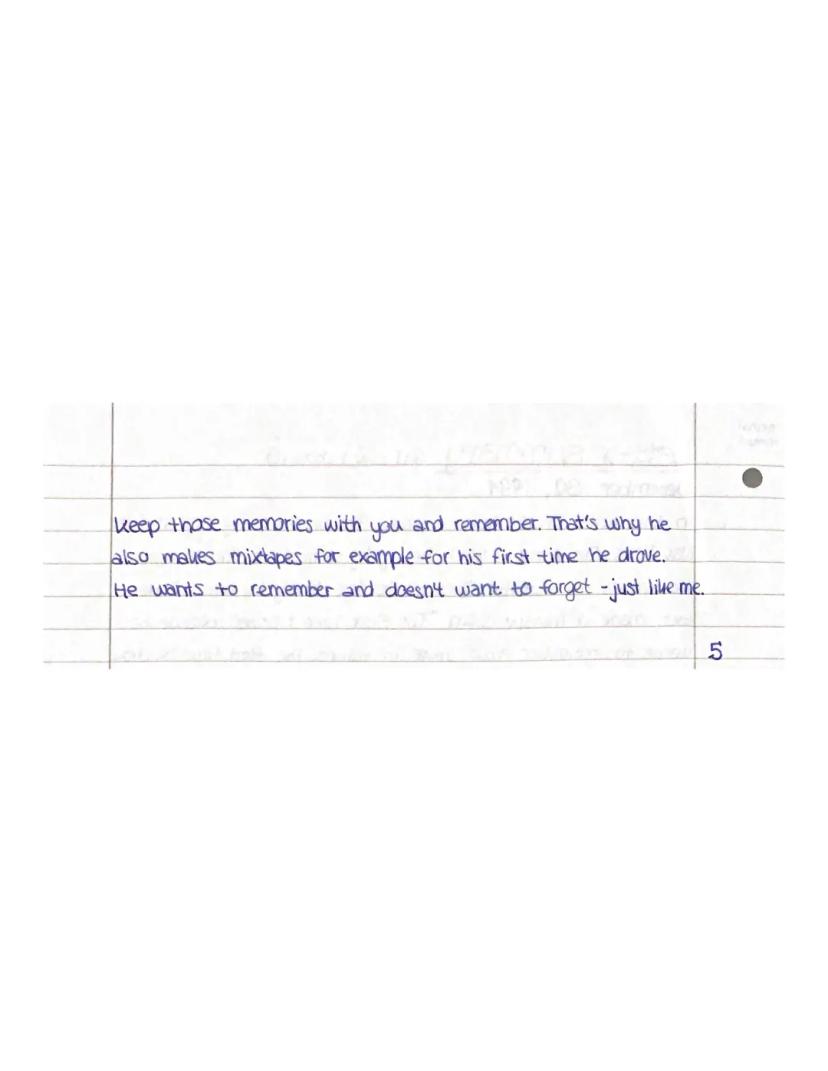 keep those memories with you and remember. That's why he
also makes mixtapes for example for his first time he drove.
He wants to remember and doesn't want to forget - just like me.
5